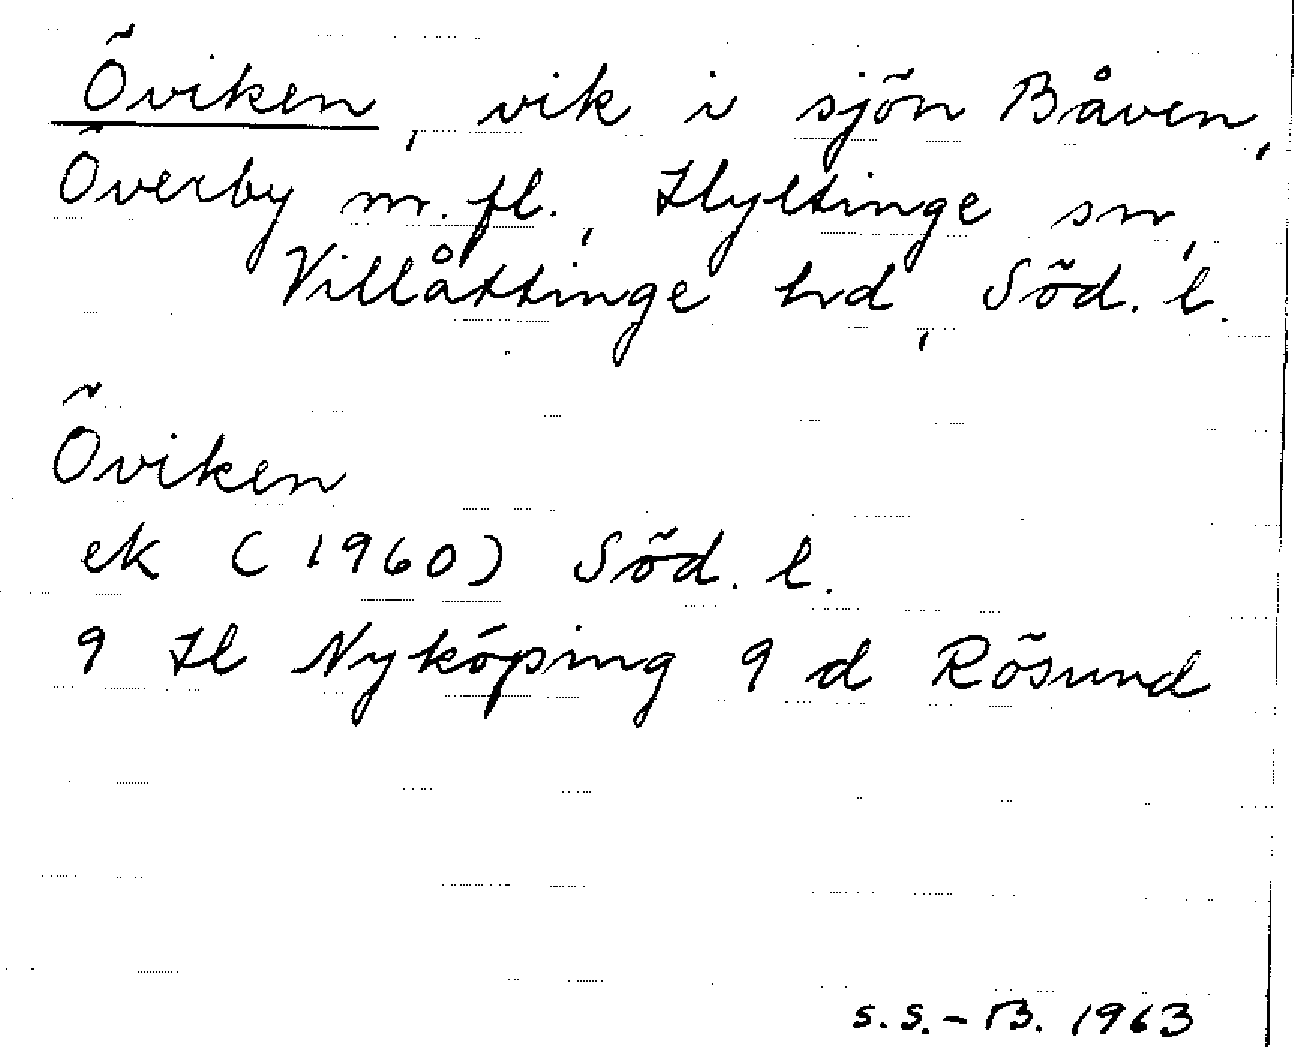 Öviken, vik i sjön Båven,
Överby m. fl., Hyltinge sn,
Villåttinge hd, Söd. l.
Öviken
ek (1960) Söd. l.
9 H Nyköping 9 d Rösund
S.S.-B. 1963